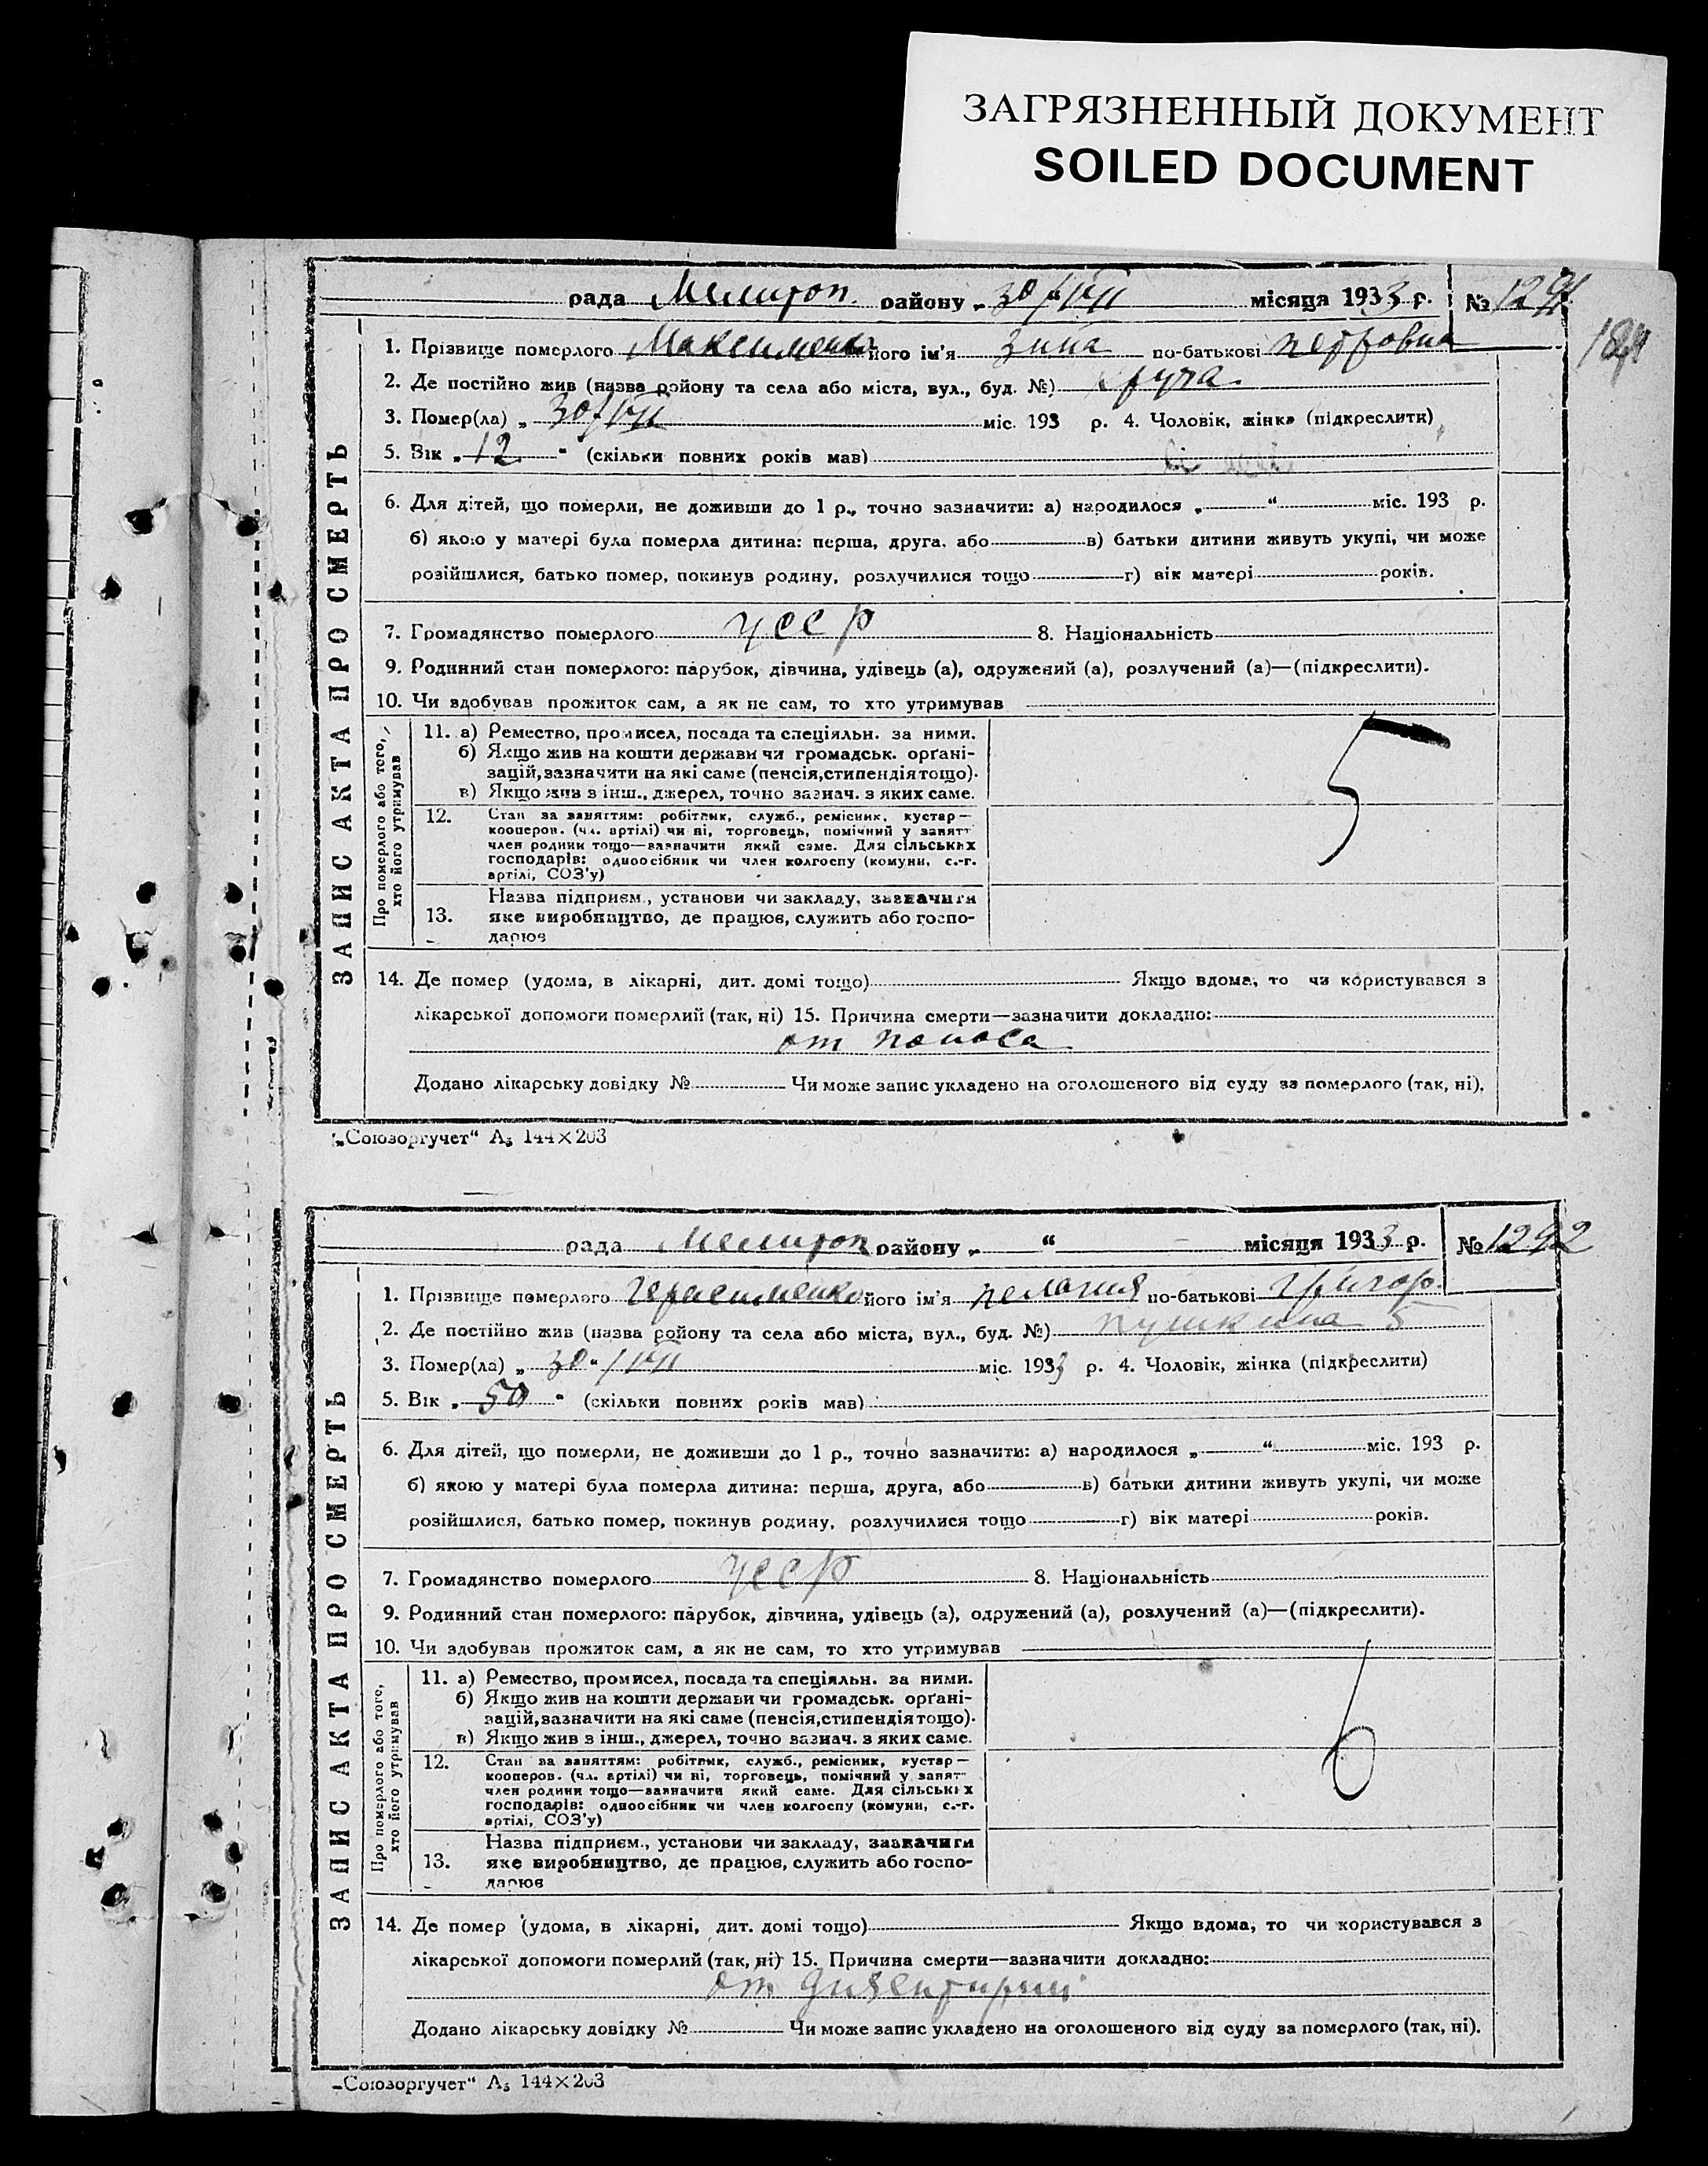 ЗАГРЯЗНЕННЫЙ ДОКУМЕНТ
SOILED DOCUMENT
рада Мелитоп. району „30/VII“ місяця 1933 р. № 1291
184
ЗАПИС АКТА ПРО СМЕРТЬ
1. Прізвище померлого його ім'я Зина по-батькові Петровна
2. Де постійно жив (назва району та села або міста, вул., буд. №)
3. Помер(ла) „ 30/VII міс. 193 р. 4. Чоловік, жінка (підкреслити)
5. Вік „ 12 “ (скільки повних років мав)
6. Для дітей, що померли, не доживши до 1 р., точно зазначити: а) народилося „ “ міс. 193 р.
б) якою у матері була померла дитина: перша, друга, або в) батьки дитини живуть укупі, чи може
розійшлися, батько помер, покинув родину, розлучилися тощо г) вік матері років.
7. Громадянство померлого УССР 8. Національність
9. Родинний стан померлого: парубок, дівчина, удівець (а), одружений (а), розлучений (а)—(підкреслити).
10. Чи здобував прожиток сам, а як не сам, то хто утримував
Про померлого або того, хто його утримував
11. а) Ремество, промисел, посада та спеціяльн. за ними.
б) Якщо жив на кошти держави чи громадськ. орґані-
зацій, зазначити на які саме (пенсія, стипендія тощо).
в) Якщо жив з інш., джерел, точно зазнач. з яких саме.
5
12. Стан за заняттям: робітник, служб., ремісник, кустар—
кооперов. (чл. артілі) чи ні, торговець, помічний у занят
член родини тощо—зазначити який саме. Для сільських
господарів: одноосібник чи член колгоспу (комуни, с.-г.
артілі, СОЗ'у)
13. Назва підприєм., установи чи закладу, зазначити
яке виробництво, де працює, служить або госпо-
дарює
14. Де помер (удома, в лікарні, дит. домі тощо) Якщо вдома, то чи користувався з
лікарської допомоги померлий (так, ні) 15. Причина смерти—зазначити докладно:
от поноса
Додано лікарську довідку № Чи може запис укладено на оголошеного від суду за померлого (так, ні).
„Союзоргучет“ А₅ 144×203
рада Мелитоп. району „ “ місяця 1933 р. № 1292
ЗАПИС АКТА ПРО СМЕРТЬ
1. Прізвище померлого Герасименко його ім'я Пелагия по-батькові Григор.
2. Де постійно жив (назва району та села або міста, вул., буд. №) Пушкина 5
3. Помер(ла) „ 30“/VII міс. 1933 р. 4. Чоловік, жінка (підкреслити)
5. Вік „ 50 “ (скільки повних років мав)
6. Для дітей, що померли, не доживши до 1 р., точно зазначити: а) народилося „ “ міс. 193 р.
б) якою у матері була померла дитина: перша, друга, або в) батьки дитини живуть укупі, чи може
розійшлися, батько помер, покинув родину, розлучилися тощо г) вік матері років.
7. Громадянство померлого УССР 8. Національність
9. Родинний стан померлого: парубок, дівчина, удівець (а), одружений (а), розлучений (а)—(підкреслити).
10. Чи здобував прожиток сам, а як не сам, то хто утримував
Про померлого або того, хто його утримував
11. а) Ремество, промисел, посада та спеціяльн. за ними.
б) Якщо жив на кошти держави чи громадськ. орґані-
зацій, зазначити на які саме (пенсія, стипендія тощо).
в) Якщо жив з інш., джерел, точно зазнач. з яких саме.
6
12. Стан за заняттям: робітник, служб., ремісник, кустар—
кооперов. (чл. артілі) чи ні, торговець, помічний у занят
член родини тощо—зазначити який саме. Для сільських
господарів: одноосібник чи член колгоспу (комуни, с.-г.
артілі, СОЗ'у)
13. Назва підприєм., установи чи закладу, зазначити
яке виробництво, де працює, служить або госпо-
дарює
14. Де помер (удома, в лікарні, дит. домі тощо) Якщо вдома, то чи користувався з
лікарської допомоги померлий (так, ні) 15. Причина смерти—зазначити докладно:
от
Додано лікарську довідку № Чи може запис укладено на оголошеного від суду за померлого (так, ні).
„Союзоргучет“ А₅ 144×203